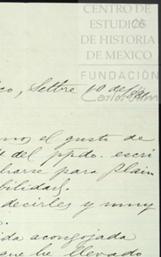 CENTRO DE
ESTUDIOS
DE HISTORIA
DE MEXICO
FUNDACIÓN
Carlos Slim
co, Settre 10 de
el gusto de
del ppdo. escri
birse para
bilidad,
decirles y muy
ida acongojada
que he llevado